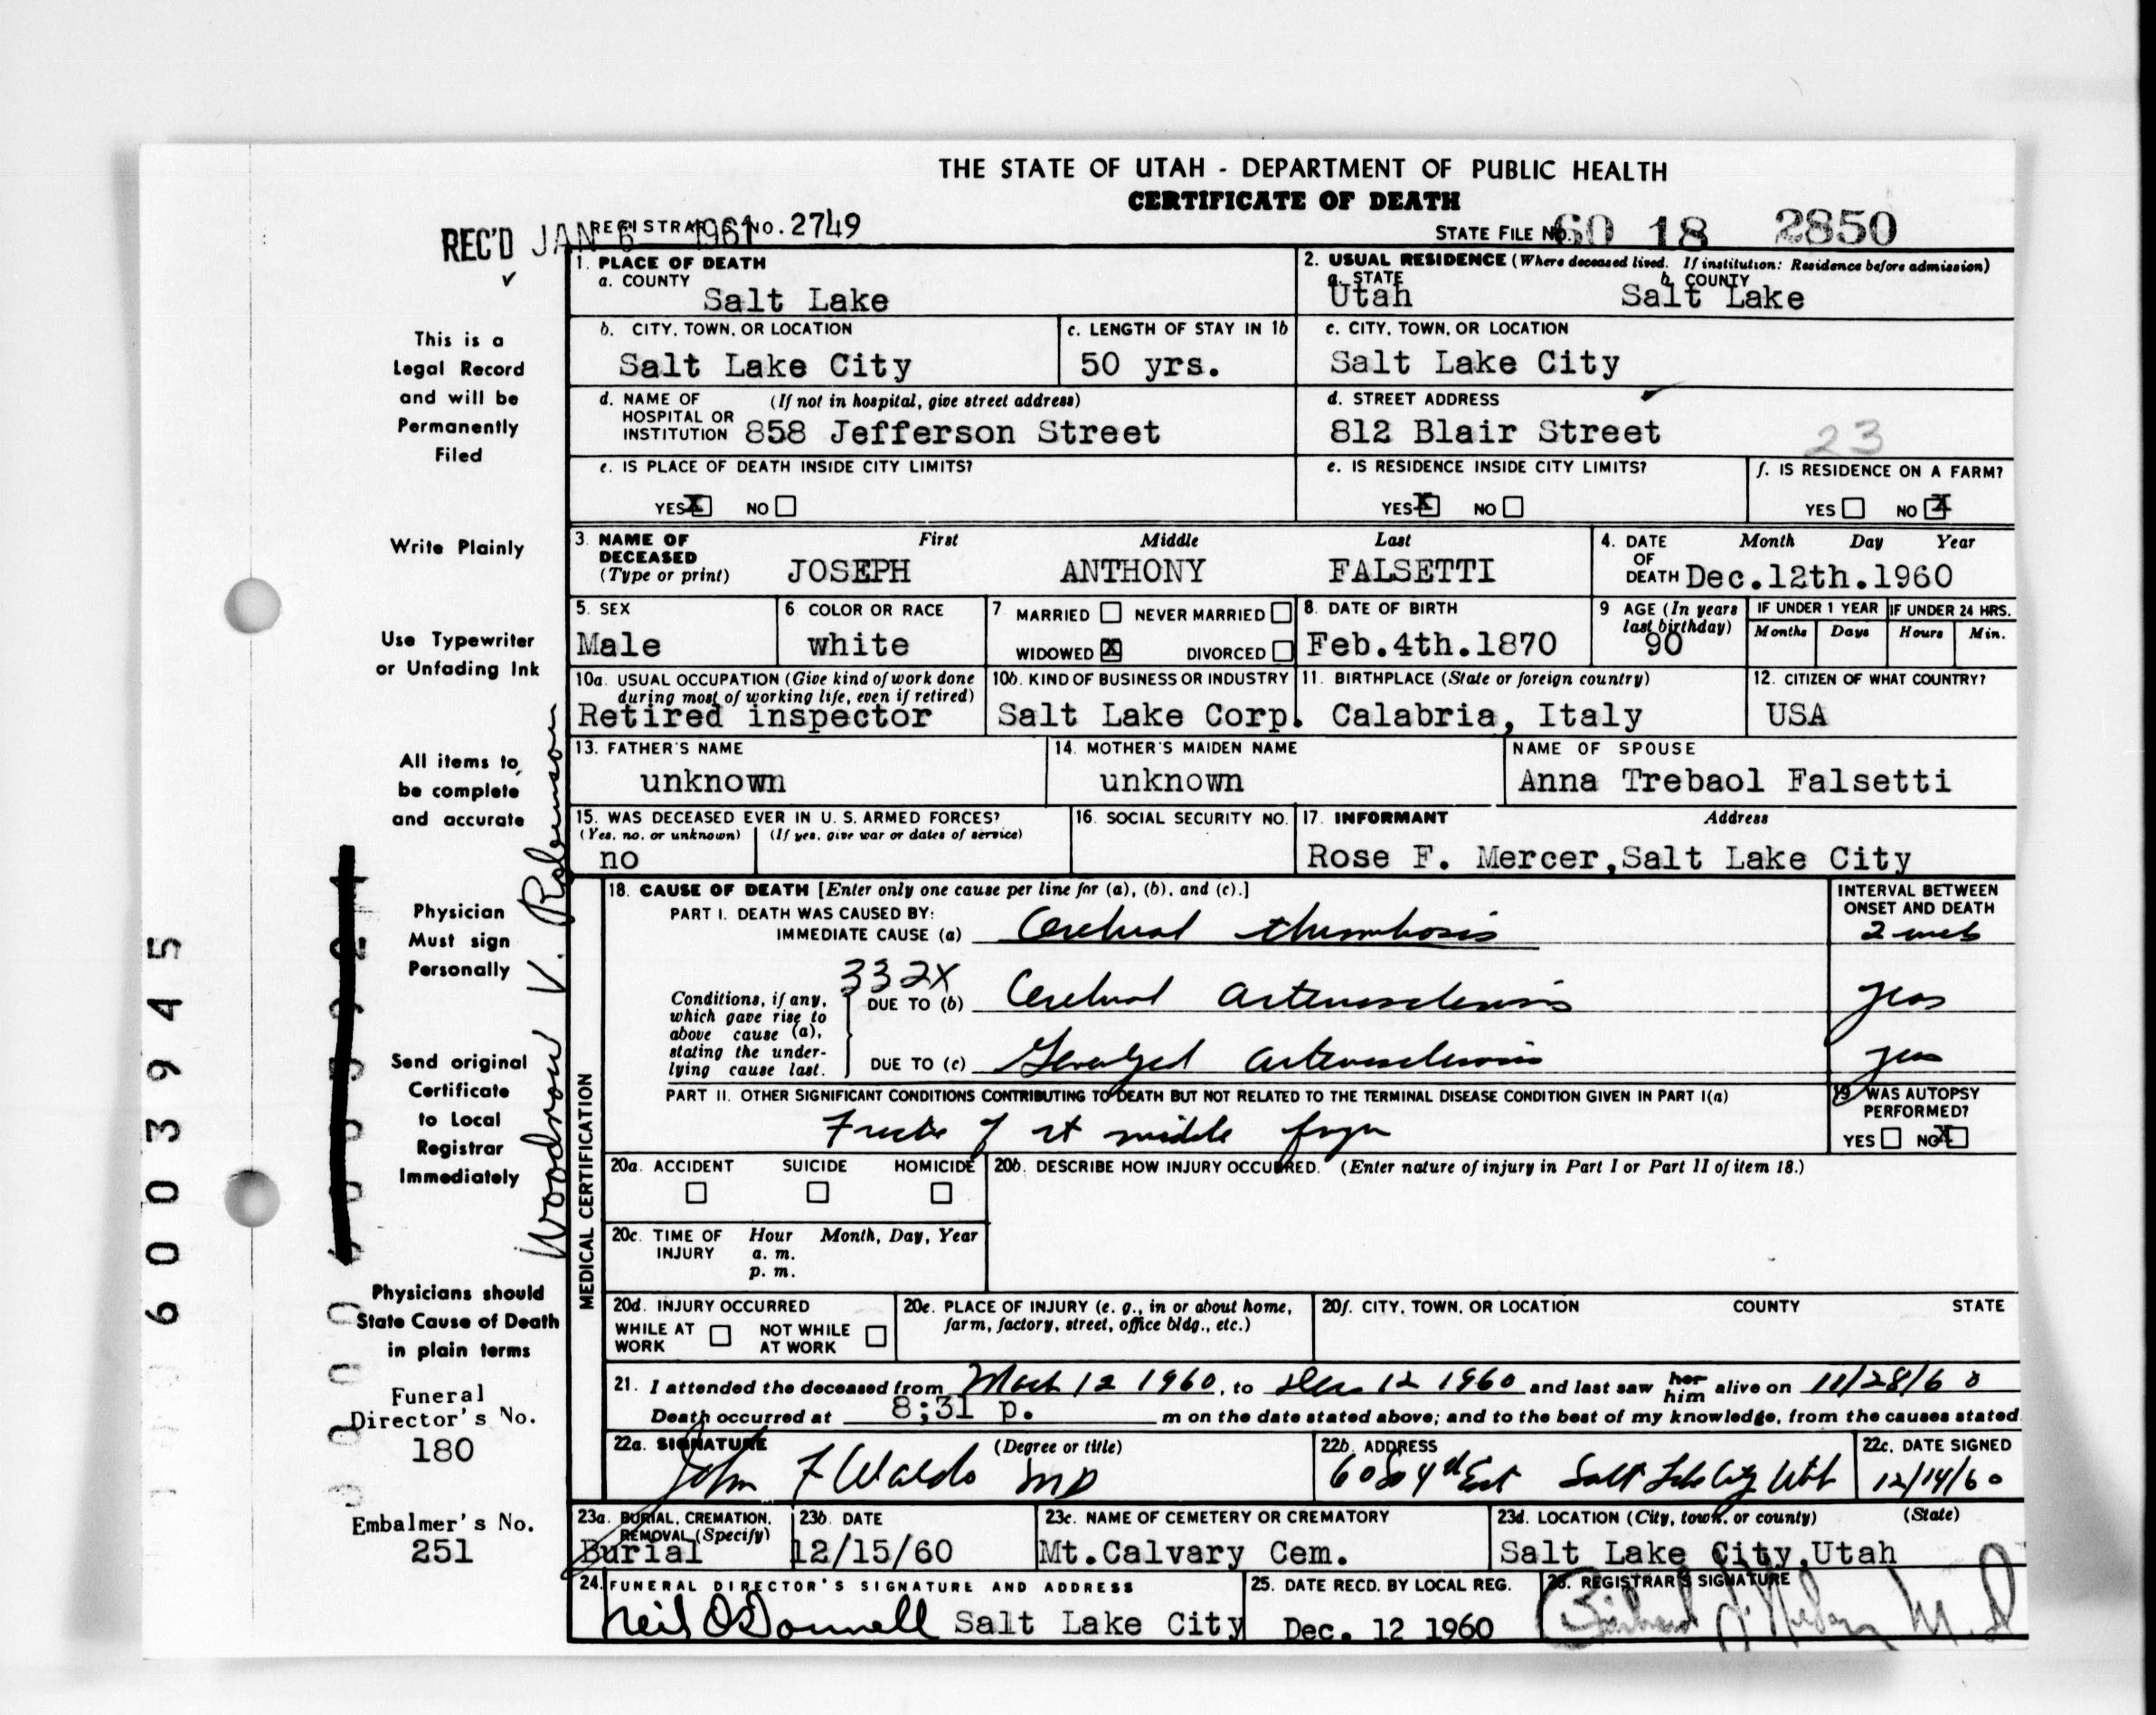 THE STATE OF UTAH - DEPARTMENT OF PUBLIC HEALTH
CERTIFICATE OF DEATH
REC'D JAN 6 1961 REGISTRAR'S NO. 2749
STATE FILE NO. 60 18 2850
1. PLACE OF DEATH
a. COUNTY
Salt Lake
2. USUAL RESIDENCE (Where deceased lived. If institution: Residence before admission)
a. STATE b. COUNTY
Utah Salt Lake
b. CITY, TOWN, OR LOCATION
Salt Lake City
c. LENGTH OF STAY IN 1b
50 yrs.
c. CITY, TOWN, OR LOCATION
Salt Lake City
d. NAME OF (If not in hospital, give street address)
HOSPITAL OR
INSTITUTION 858 Jefferson Street
d. STREET ADDRESS
812 Blair Street
23
e. IS PLACE OF DEATH INSIDE CITY LIMITS?
YES X NO
e. IS RESIDENCE INSIDE CITY LIMITS?
YES X NO
f. IS RESIDENCE ON A FARM?
YES NO X
3. NAME OF DECEASED (Type or print)
First Middle Last
JOSEPH ANTHONY FALSETTI
4. DATE OF DEATH Month Day Year
Dec.12th.1960
5. SEX
Male
6. COLOR OR RACE
white
7. MARRIED NEVER MARRIED
WIDOWED X DIVORCED
8. DATE OF BIRTH
Feb.4th.1870
9 AGE (In years last birthday)
90
IF UNDER 1 YEAR IF UNDER 24 HRS.
Months Days Hours Min.
10a. USUAL OCCUPATION (Give kind of work done
during most of working life, even if retired)
Retired inspector
10b. KIND OF BUSINESS OR INDUSTRY
Salt Lake Corp.
11. BIRTHPLACE (State or foreign country)
Calabria, Italy
12. CITIZEN OF WHAT COUNTRY?
USA
13. FATHER'S NAME
unknown
14. MOTHER'S MAIDEN NAME
unknown
NAME OF SPOUSE
Anna Trebaol Falsetti
15. WAS DECEASED EVER IN U. S. ARMED FORCES?
(Yes, no, or unknown) (If yes, give war or dates of service)
no
16. SOCIAL SECURITY NO.
17. INFORMANT Address
Rose F. Mercer,Salt Lake City
MEDICAL CERTIFICATION
18. CAUSE OF DEATH [Enter only one cause per line for (a), (b), and (c).]
PART I. DEATH WAS CAUSED BY:
IMMEDIATE CAUSE (a) Cerebral thrombosis
INTERVAL BETWEEN
ONSET AND DEATH
332X
Conditions, if any,
which gave rise to
above cause (a),
stating the under-
lying cause last.
DUE TO (b) Cerebral arteriosclerosis
DUE TO (c) arteriosclerosis
PART II. OTHER SIGNIFICANT CONDITIONS CONTRIBUTING TO DEATH BUT NOT RELATED TO THE TERMINAL DISEASE CONDITION GIVEN IN PART I(a)
rt middle
19. WAS AUTOPSY
PERFORMED?
YES NO X
20a. ACCIDENT SUICIDE HOMICIDE
20b. DESCRIBE HOW INJURY OCCURRED. (Enter nature of injury in Part I or Part II of item 18.)
20c. TIME OF INJURY Hour Month, Day, Year
a. m.
p. m.
20d. INJURY OCCURRED
WHILE AT WORK NOT WHILE AT WORK
20e. PLACE OF INJURY (e. g., in or about home,
farm, factory, street, office bldg., etc.)
20f. CITY, TOWN, OR LOCATION COUNTY STATE
21. I attended the deceased from March 12 1960, to Dec 12 1960 and last saw her him alive on 11/28/60
Death occurred at 8;31 p. m on the date stated above; and to the best of my knowledge, from the causes stated
22a. SIGNATURE (Degree or title)
John F Waldo MD
22b. ADDRESS
Salt Lake City Utah
22c. DATE SIGNED
12/14/60
23a. BURIAL, CREMATION,
REMOVAL (Specify)
Burial
23b. DATE
12/15/60
23c. NAME OF CEMETERY OR CREMATORY
Mt.Calvary Cem.
23d. LOCATION (City, town, or county) (State)
Salt Lake City,Utah
24. FUNERAL DIRECTOR'S SIGNATURE AND ADDRESS
Neil O'Donnell Salt Lake City
25. DATE RECD. BY LOCAL REG.
Dec. 12 1960
26. REGISTRAR'S SIGNATURE
This is a
Legal Record
and will be
Permanently
Filed
Write Plainly
Use Typewriter
or Unfading Ink
All items to
be complete
and accurate
Physician
Must sign
Personally
Send original
Certificate
to Local
Registrar
Immediately
Physicians should
State Cause of Death
in plain terms
Funeral
Director's No.
180
Embalmer's No.
251
Woodrow V. Robinson
6003945